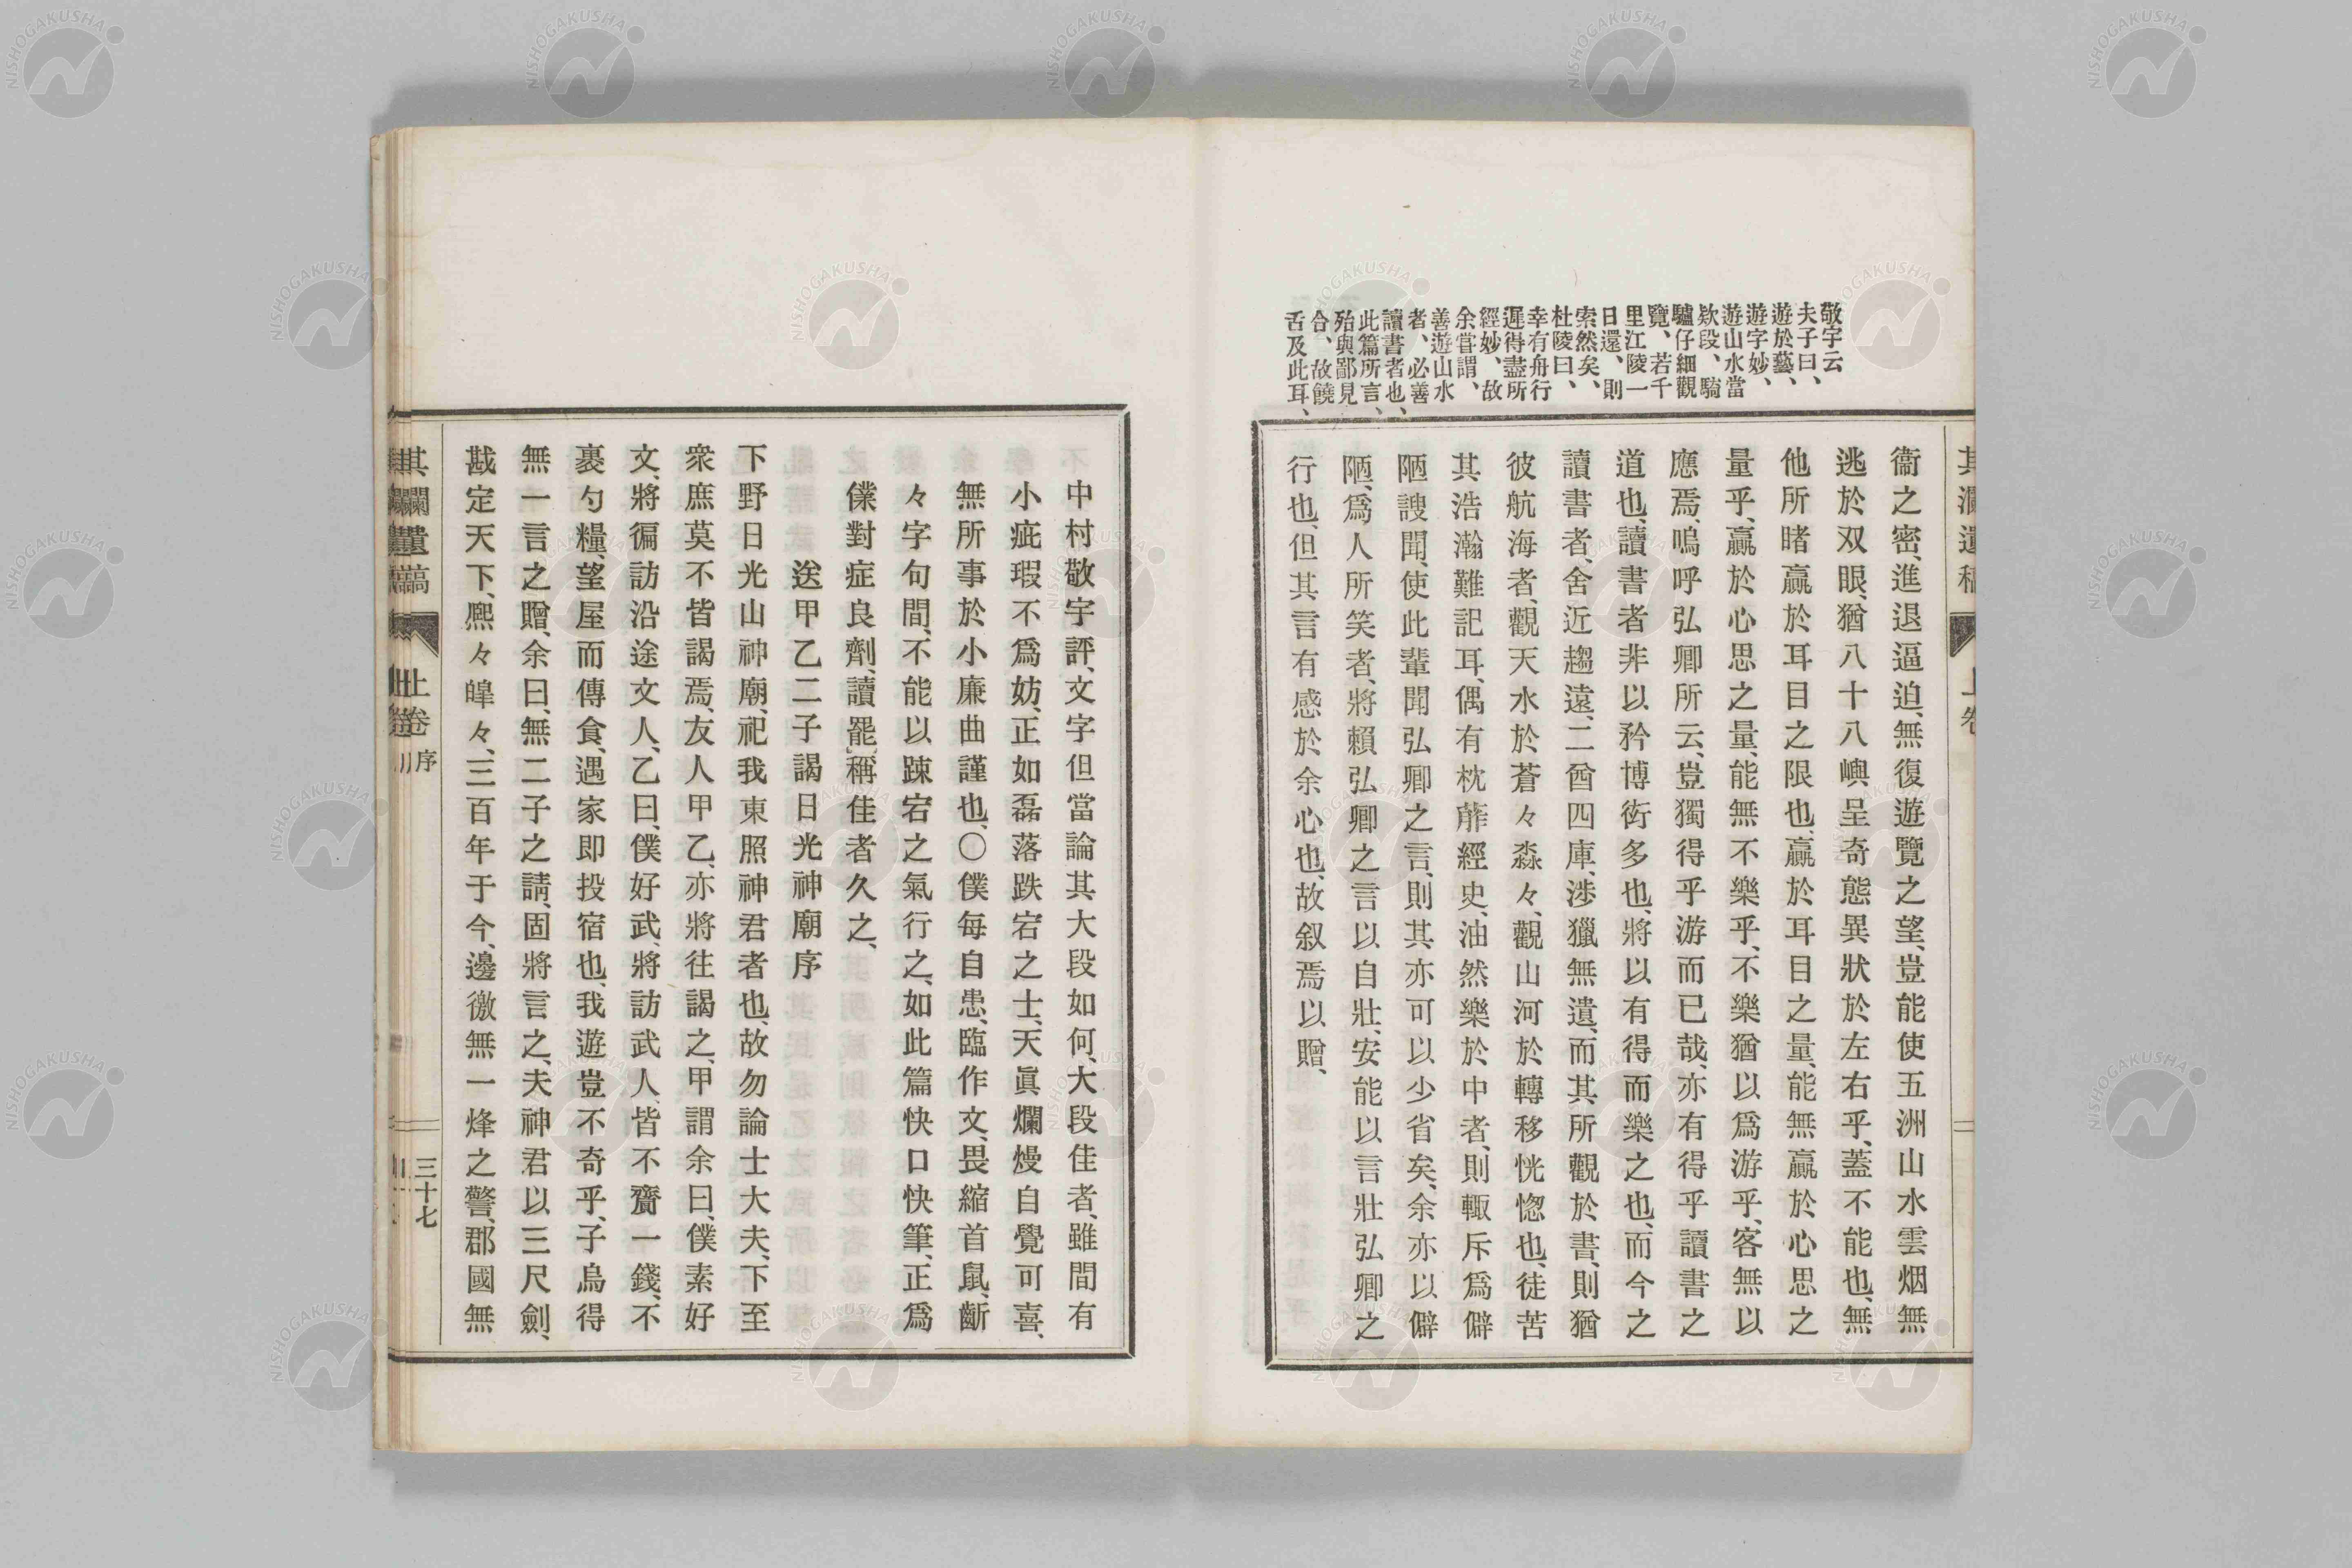 敬宇云、
夫子曰、
遊於藝、
遊字妙、
遊山水當
欵段、騎
驢仔細觀
覽、若千
里江陵一
日還、則
索然矣、
杜陵曰、
幸有舟行
遲得盡所
經妙、故
余嘗謂、
善遊山水
者、必善
讀書者也、
此篇所言、
殆與鄙見
合、故饒
舌及此耳、
衞之密、進退逼迫、無復遊覽之望、豈能使五洲山水雲烟無
逃於双眼、猶八十八嶼呈奇態異狀於左右乎、蓋不能也、無
他所睹贏於耳目之限也、贏於耳目之量、能無贏於心思之
量乎、贏於心思之量、能無不樂乎、不樂猶以爲游乎、客無以
應焉、嗚呼弘卿所云、豈獨得乎游而已哉、亦有得乎讀書之
道也、讀書者非以矜博衒多也、將以有得而樂之也、而今之
讀書者、舍近趨遠、二酋四庫、涉獵無遺、而其所觀於書、則猶
彼航海者、觀天水於蒼々淼々、觀山河於轉移恍惚也、徒苦
其浩瀚難記耳、偶有枕藉經史、油然樂於中者、則輙斥爲僻
陋謏聞、使此輩聞弘卿之言、則其亦可以少省矣、余亦以僻
陋、爲人所笑者、將賴弘卿之言以自壯、安能以言壯弘卿之
行也、但其言有感於余心也、故叙焉以贈、
中村敬宇評、文字但當論其大段如何、大段佳者、雖間有
小疵瑕不爲妨、正如磊落跌宕之士、天眞爛熳自覺可喜、
無所事於小廉曲謹也、〇僕每自患、臨作文、畏縮首鼠、齗
々字句間、不能以踈宕之氣行之、如此篇快口快筆、正爲
僕對症良劑、讀罷稱佳者久之、
送甲乙二子謁日光神廟序
下野日光山神廟、祀我東照神君者也、故勿論士大夫、下至
衆庶莫不皆謁焉、友人甲乙、亦將往謁之、甲謂余曰、僕素好
文、將徧訪沿途文人、乙曰、僕好武、將訪武人、皆不齎一錢、不
裹勺糧、望屋而傳食、遇家即投宿也、我遊豈不奇乎、子烏得
無一言之贈、余曰、無二子之請、固將言之、夫神君以三尺劍、
戡定天下、熈々皥々、三百年于今、邊徼無一烽之警、郡國無
其瀾遺稿
上卷 序
三十七